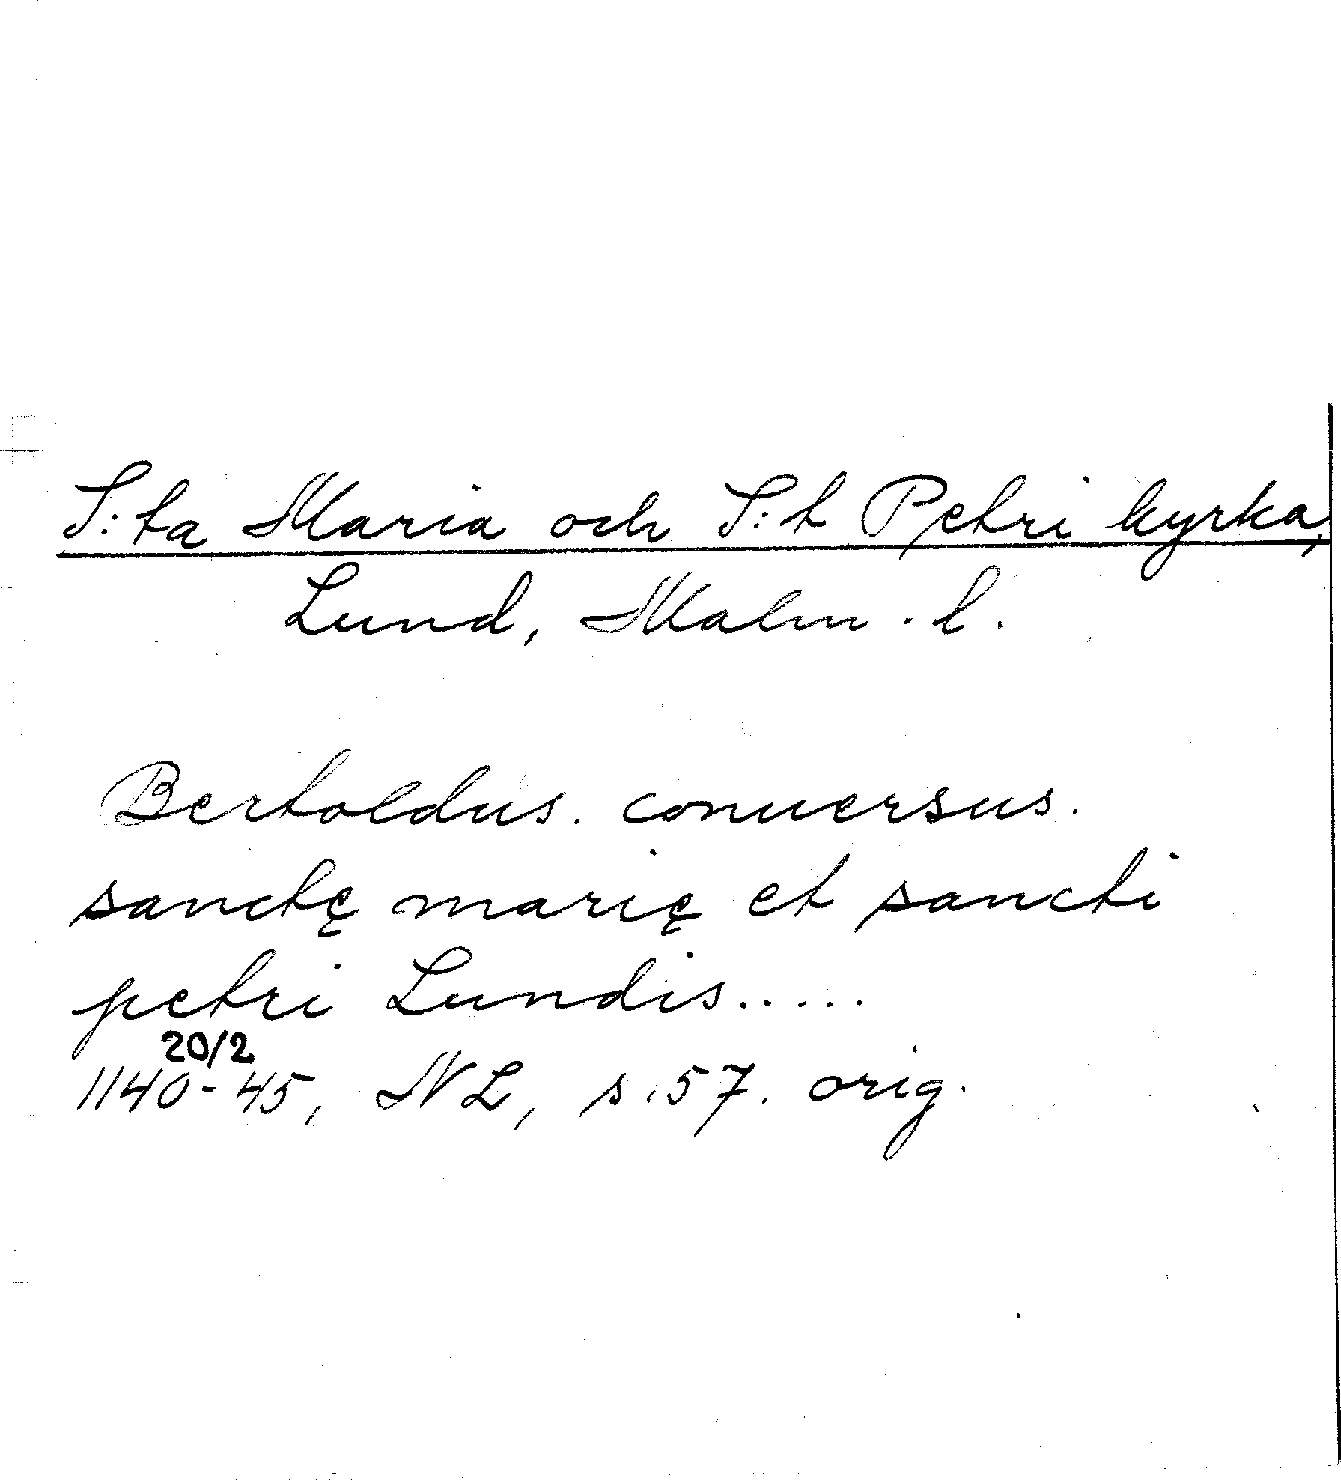 S:ta Maria och S:t Petri kyrka,
Lund, Malm. l.
Bertoldus. conuersus.
sanctę marię et sancti
petri Lundis.....
20/2
1140-45, NL, s. 57. orig.